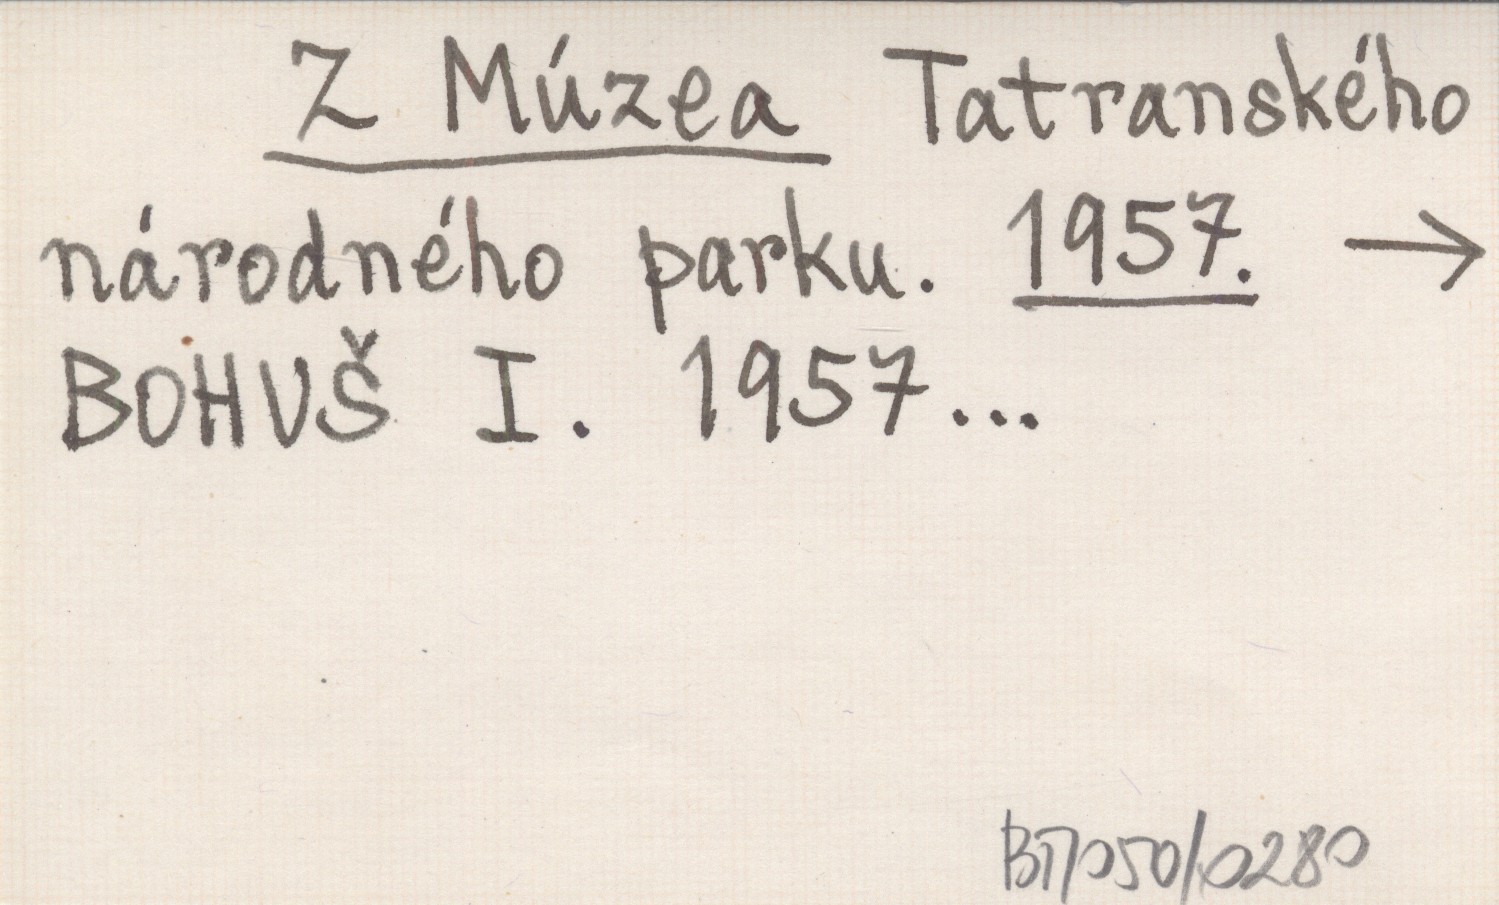 Z Múzea Tatranského
národného parku. 1957. →
BOHUŠ I. 1957...
BT/050/0280